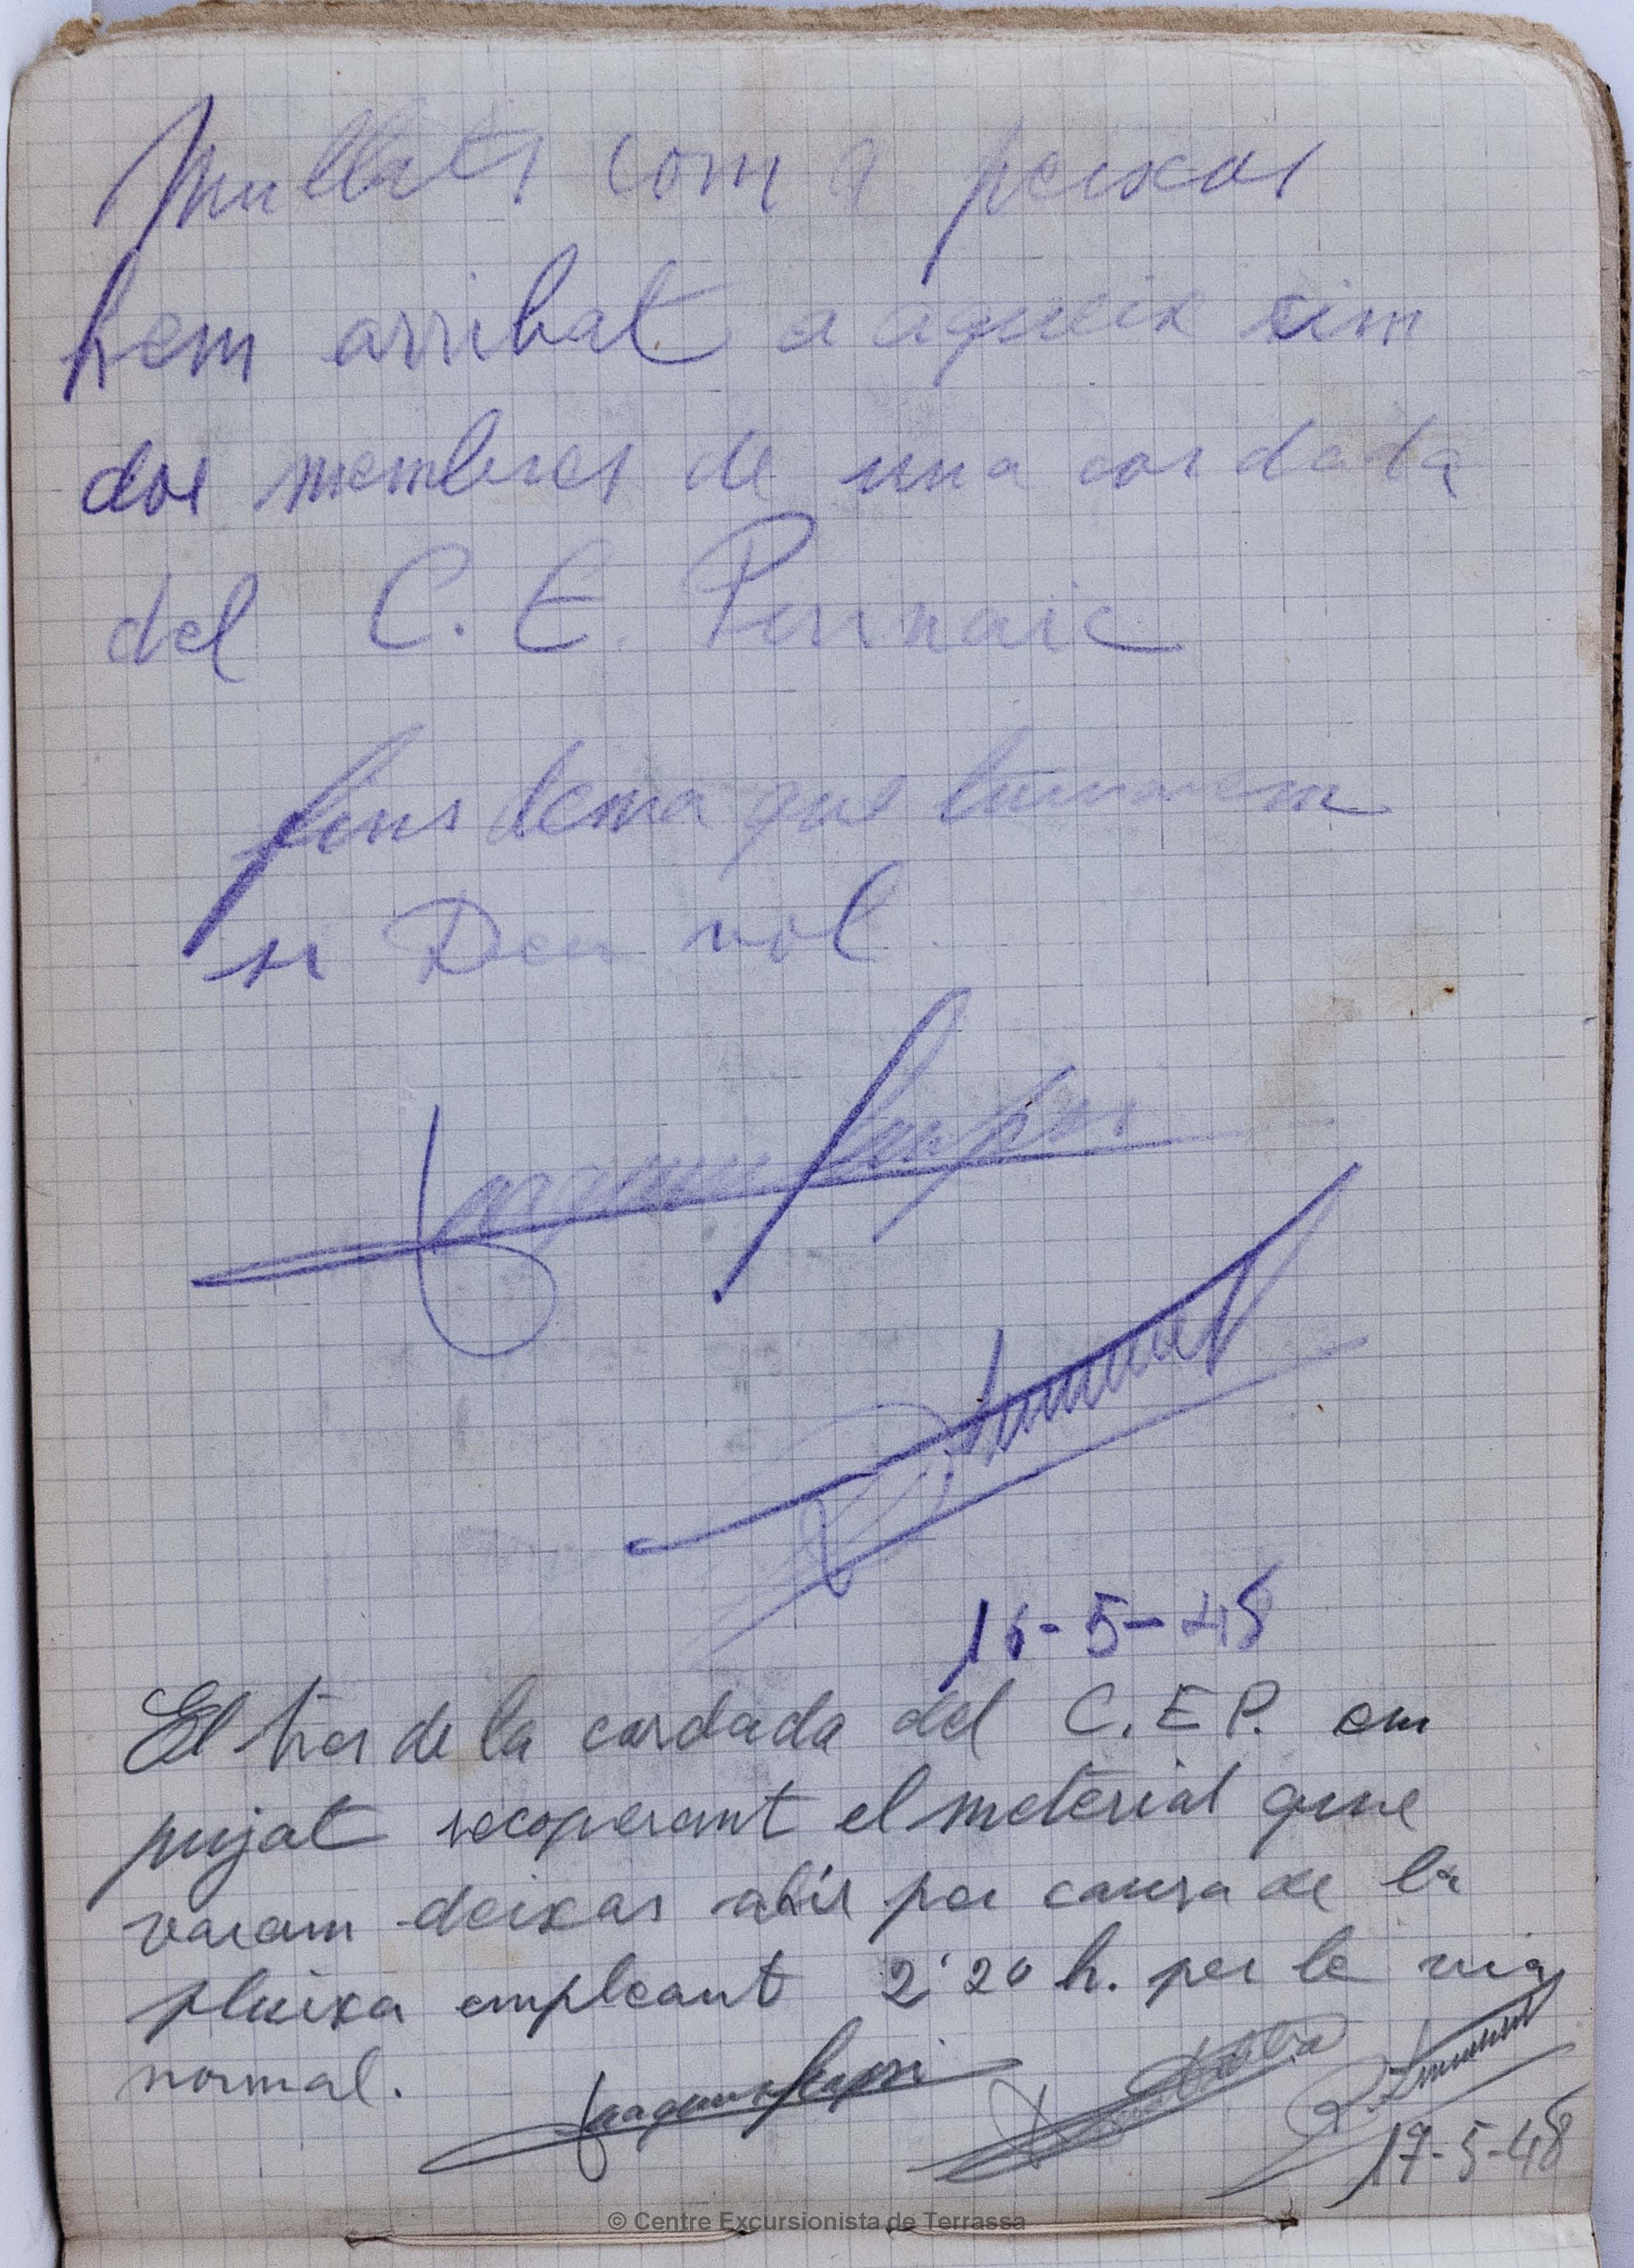 Mullats com a peixos
hem arribat a aqueix cim
dos membres de una cordada
del C. E. Pirinaic
fins dema que tornarem
si Deu vol.
16-5-48
El tres de la cordada del C.E.P. em
pujat recoperant el meterial que
varem deixar ahir per causa de la
pluixa empleant 2'20 h. per le via
normal.
17-5-48
© Centre Excursionista de Terrassa